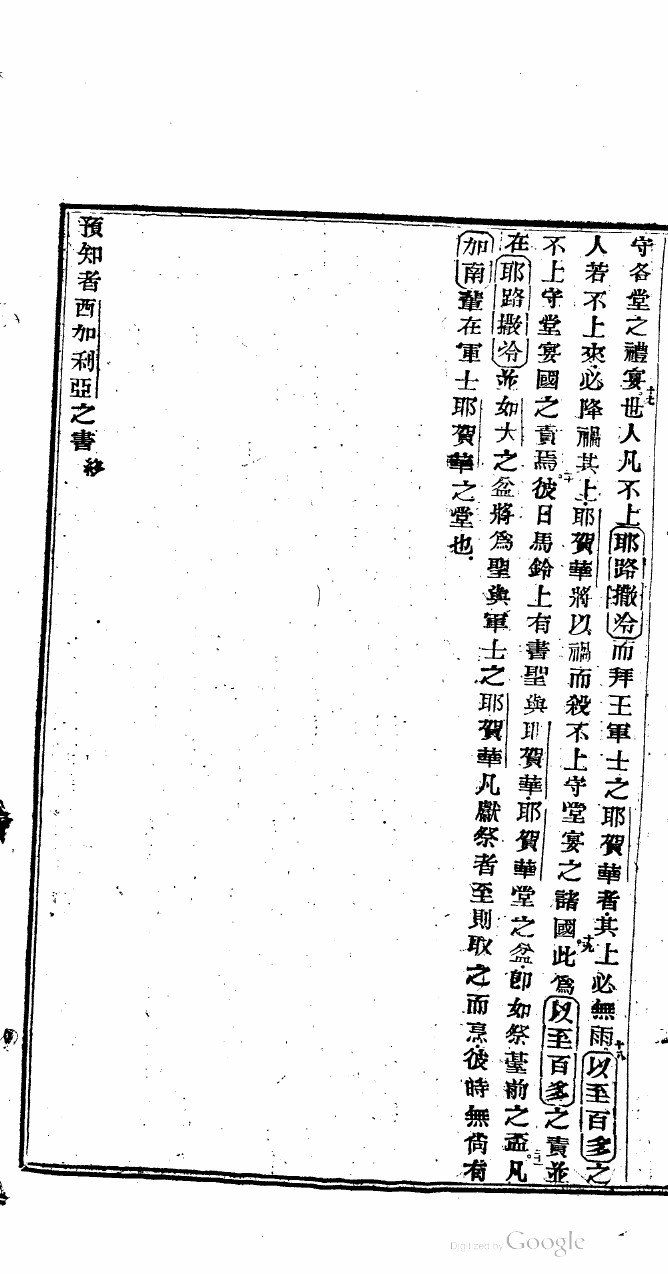 守各堂之禮宴十七世人凡不上耶路撒冷而拜王軍士之耶賀華者其上必無雨十八以至百多之
人若不上來必降禍其上耶賀華將以禍而殺不上守堂宴之諸國十九此為以至百多之責並
不上守堂宴國之責焉二十彼日馬鈴上有書聖與耶賀華耶賀華堂之盆卽如祭臺前之盂二一凡
在耶路撒冷並如大之盆將為聖與軍士之耶賀華凡獻祭者至則取之而烹彼時無尙有
加南輩在軍士耶賀華之堂也
預知者西加利亞之書終
Digitized by Google